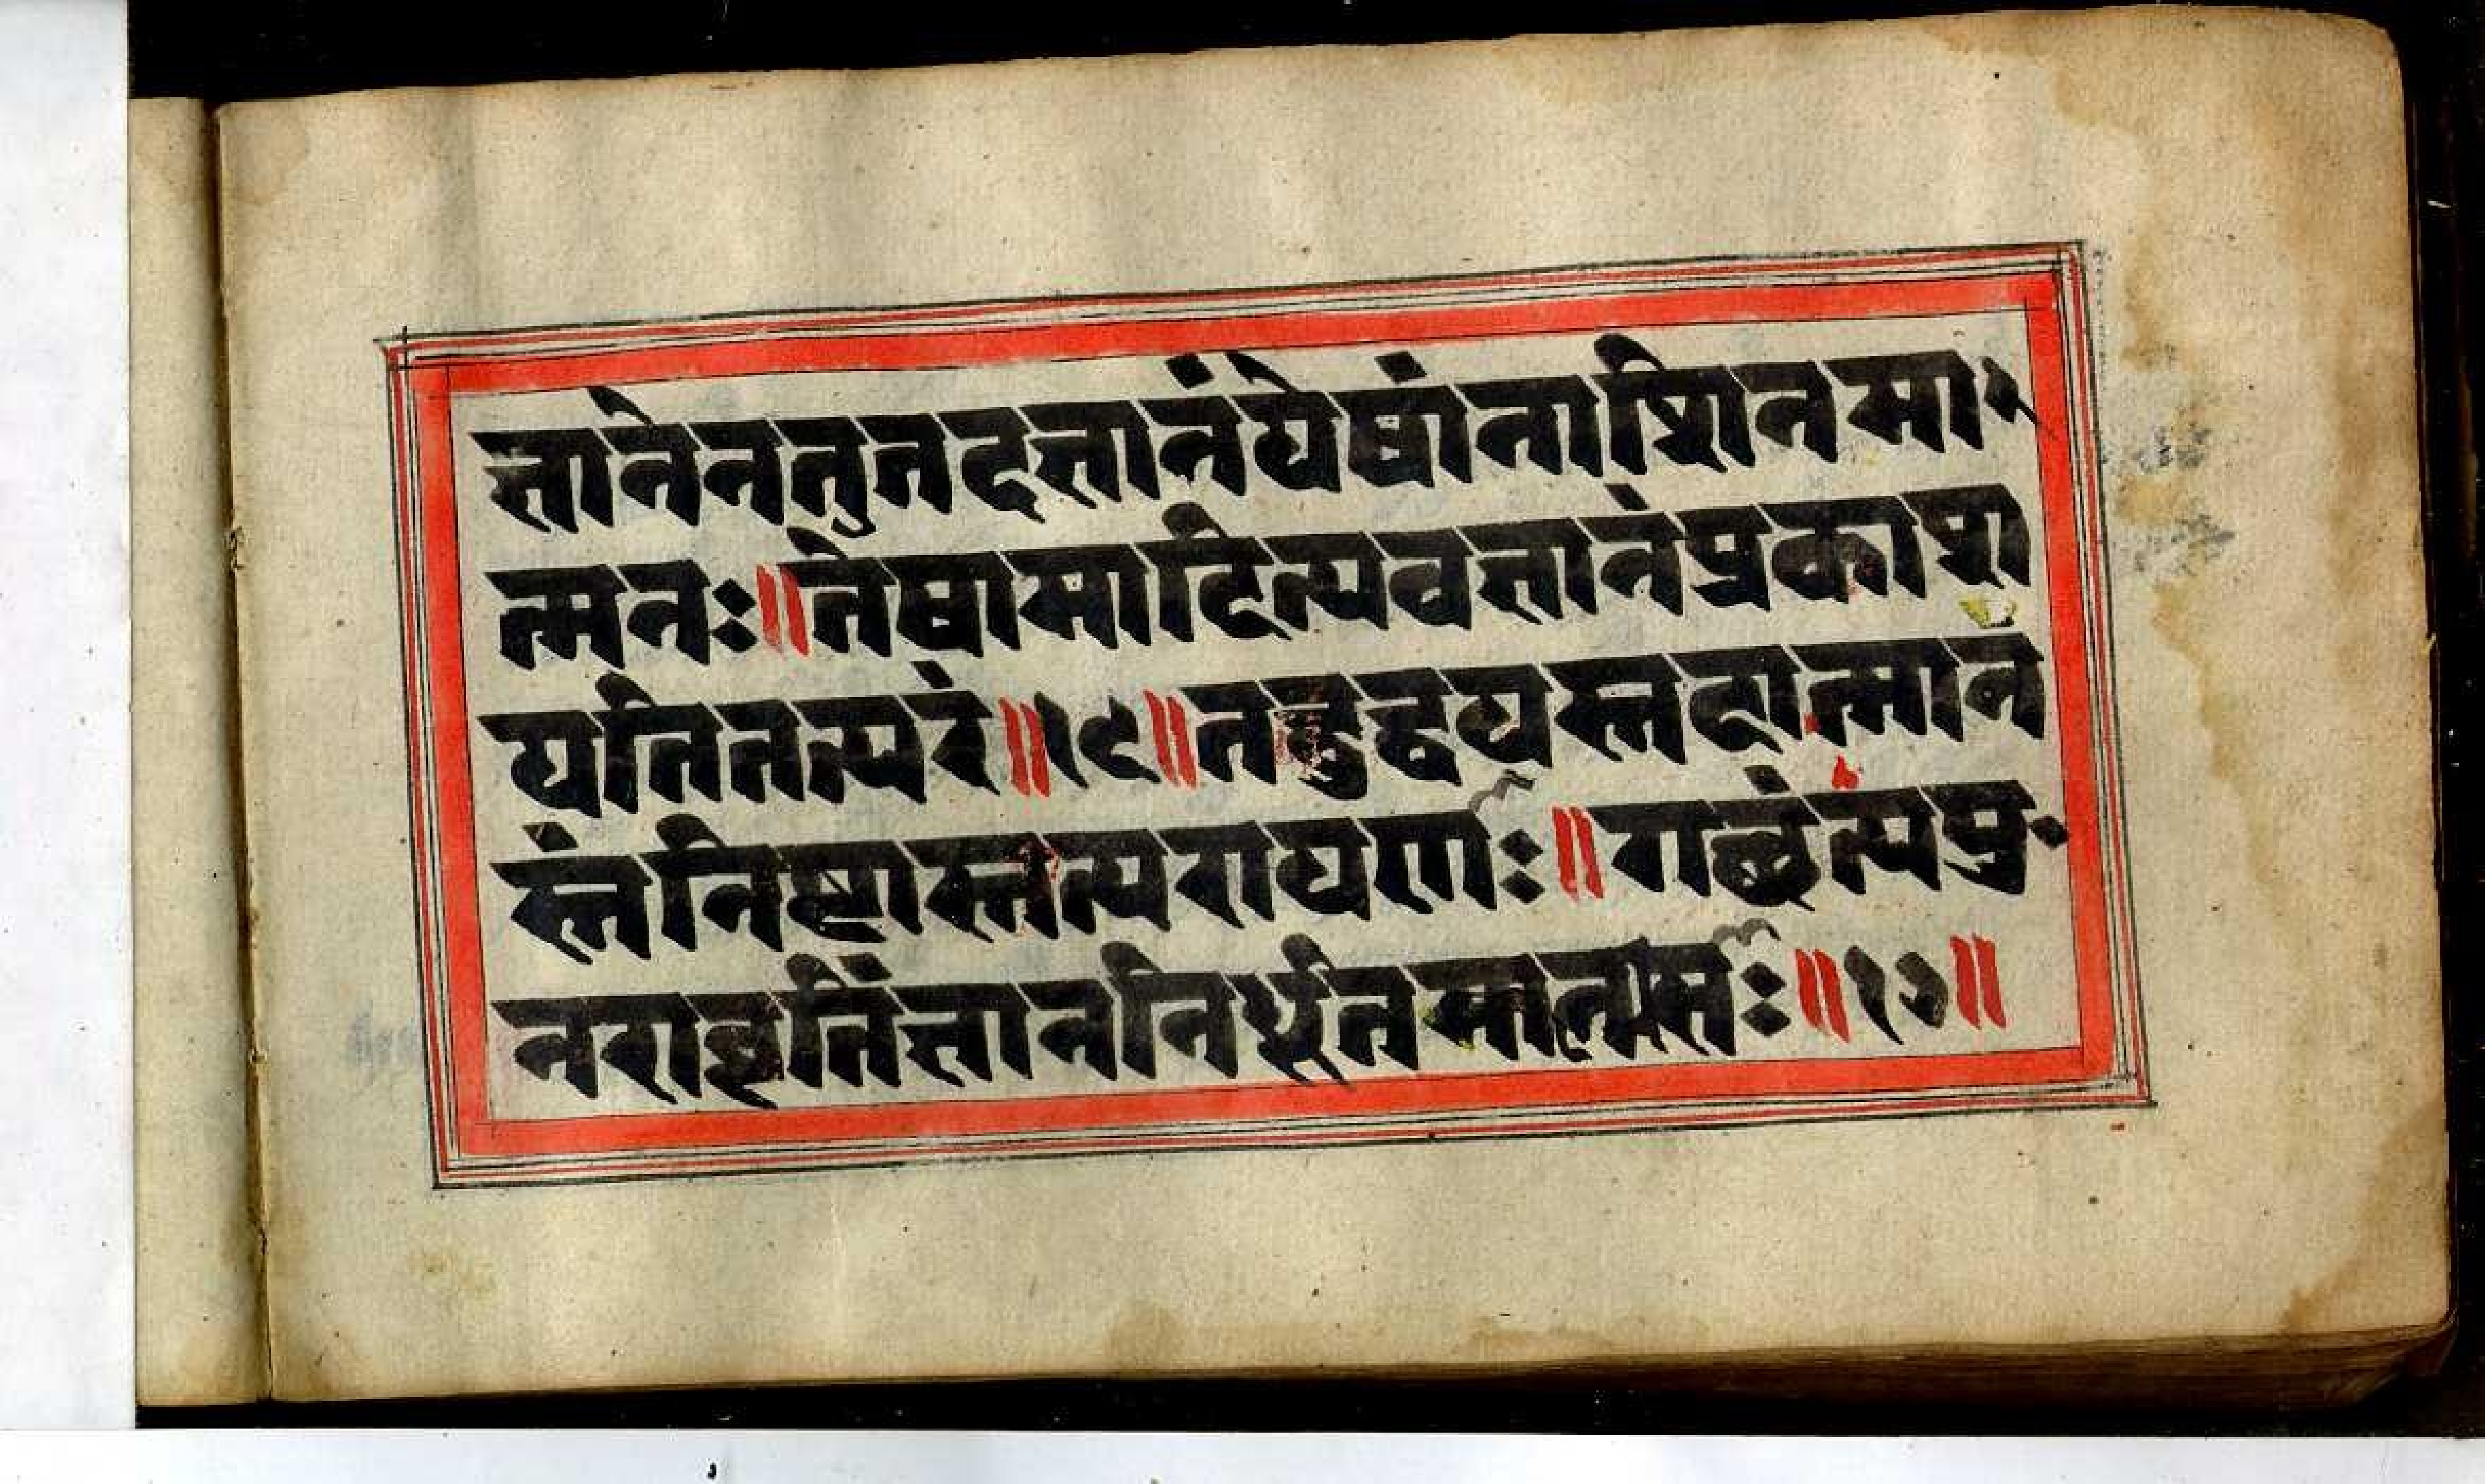 त्तानेनतुतदत्तानंयेषांनाशितमा॰
त्मनः॥तेषामादित्यवत्तानंप्रकाश
यतितत्परं॥१९॥तद्बुद्धयस्तदात्मान
स्तंनिष्ठास्तत्परायणाः॥गछंत्यपु॰
नरावृतिंत्ताननिर्धूतमाल्मसः॥१७॥